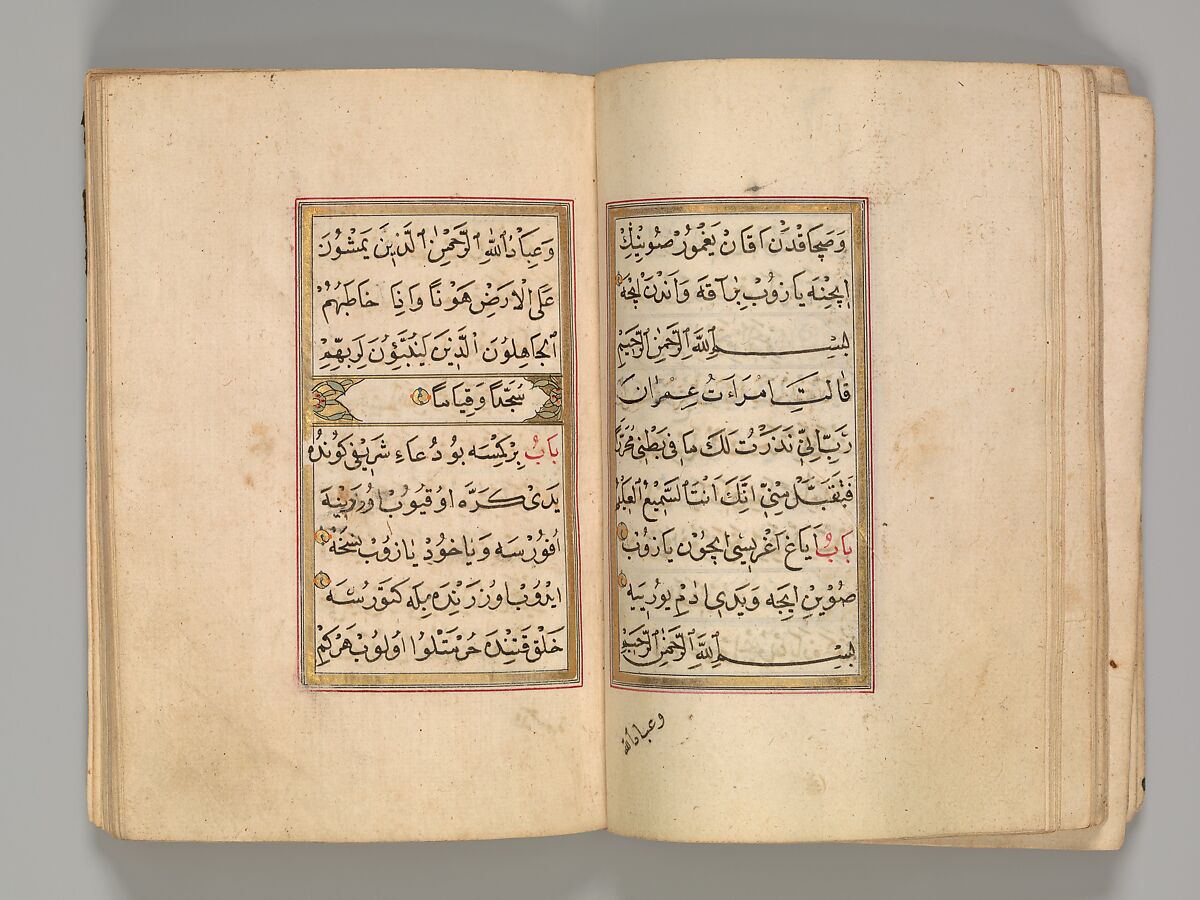 وَصَچَاقْدَنْ اَقَانْ يَغْمُورْ صُويْنِكْ
اِيچِنَه يَازُوبْ بِرْ آقْچَه وَانْدَنْ اِيچَه
بِسْــــــمِ اللّٰهِ الرَّحْمٰنِ الرَّحِيمِ
قَالَتِ امْرَاَتُ عِمْرَانَ
رَبِّ اِنِّي نَذَرْتُ لَكَ مَا فِي بَطْنِي مُحَرَّرًا
فَتَقَبَّلْ مِنِّي اِنَّكَ اَنْتَ السَّمِيعُ الْعَلِيمُ
بَابْ اَيَاغْ اَغْرِيسِي اِيچُونْ يَازُوبْ
صُويْنِ اِيچَه وَيَدِى اَدِمْ يُورِيَيه
بِسْــــــمِ اللّٰهِ الرَّحْمٰنِ الرَّحِيمِ
وعبادالله
وَعِبَادُ اللّٰهِ الرَّحْمٰنِ الَّذِينَ يَمْشُونَ
عَلَى الْاَرْضِ هَوْنًا وَاِذَا خَاطَبَهُمُ
الْجَاهِلُونَ الَّذِينَ يَبِيتُونَ لِرَبِّهِمْ
سُجَّدًا وَقِيَامًا
بَابْ بِرْ كِمْسَه بُو دُعَاءِ شَرِيفِي كُونْدَه
يَدِى كَرَّه اوُقُيوُبْ اُوزَرِينَه
اُفُورْسَه وَيَاخُودْ يَازُوبْ نُسْخَه
اِيدُوبْ اُوزَرِنْدَه بِيلَه كَتُورْسَه
خَلْقْ قَتِنْدَه حُرْمَتْلُوا اُولُوبْ هَرْ كِمْ